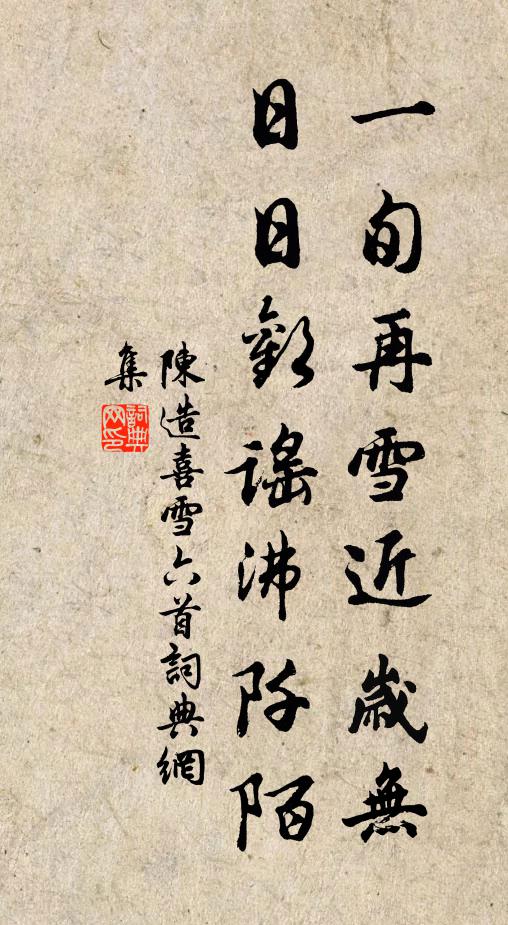 一旬再雪近歲無
日日歡謠沸阡陌
陳造喜雪六首詞典網
集
詞典網印